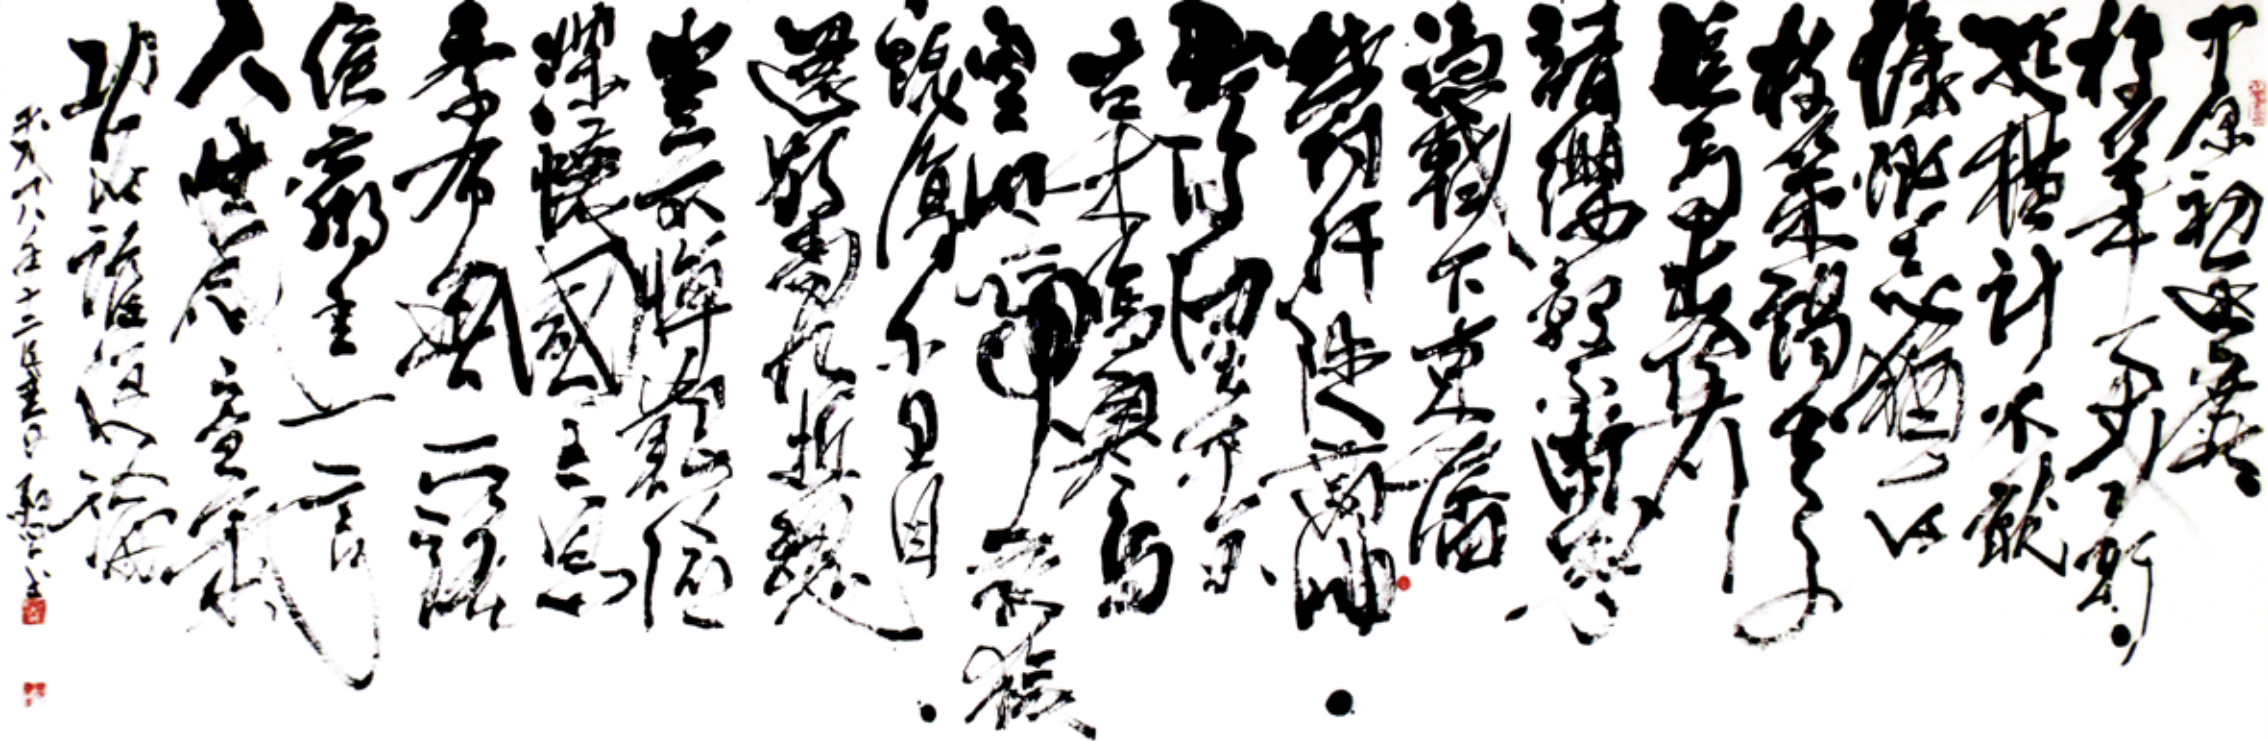 中原初逐鹿
投筆事戎軒
縱橫計不就
慷慨志猶存
杖策謁天子
驅馬出關門
請纓繫南越
憑軾下東藩
鬱紆陟高岫
出沒望平原
古木鳴寒鳥
空山啼夜猿
既傷千里目
還驚九折魂
豈不憚艱險
深懷國士恩
季布無二諾
侯嬴重一言
人生感意氣
功名誰復論